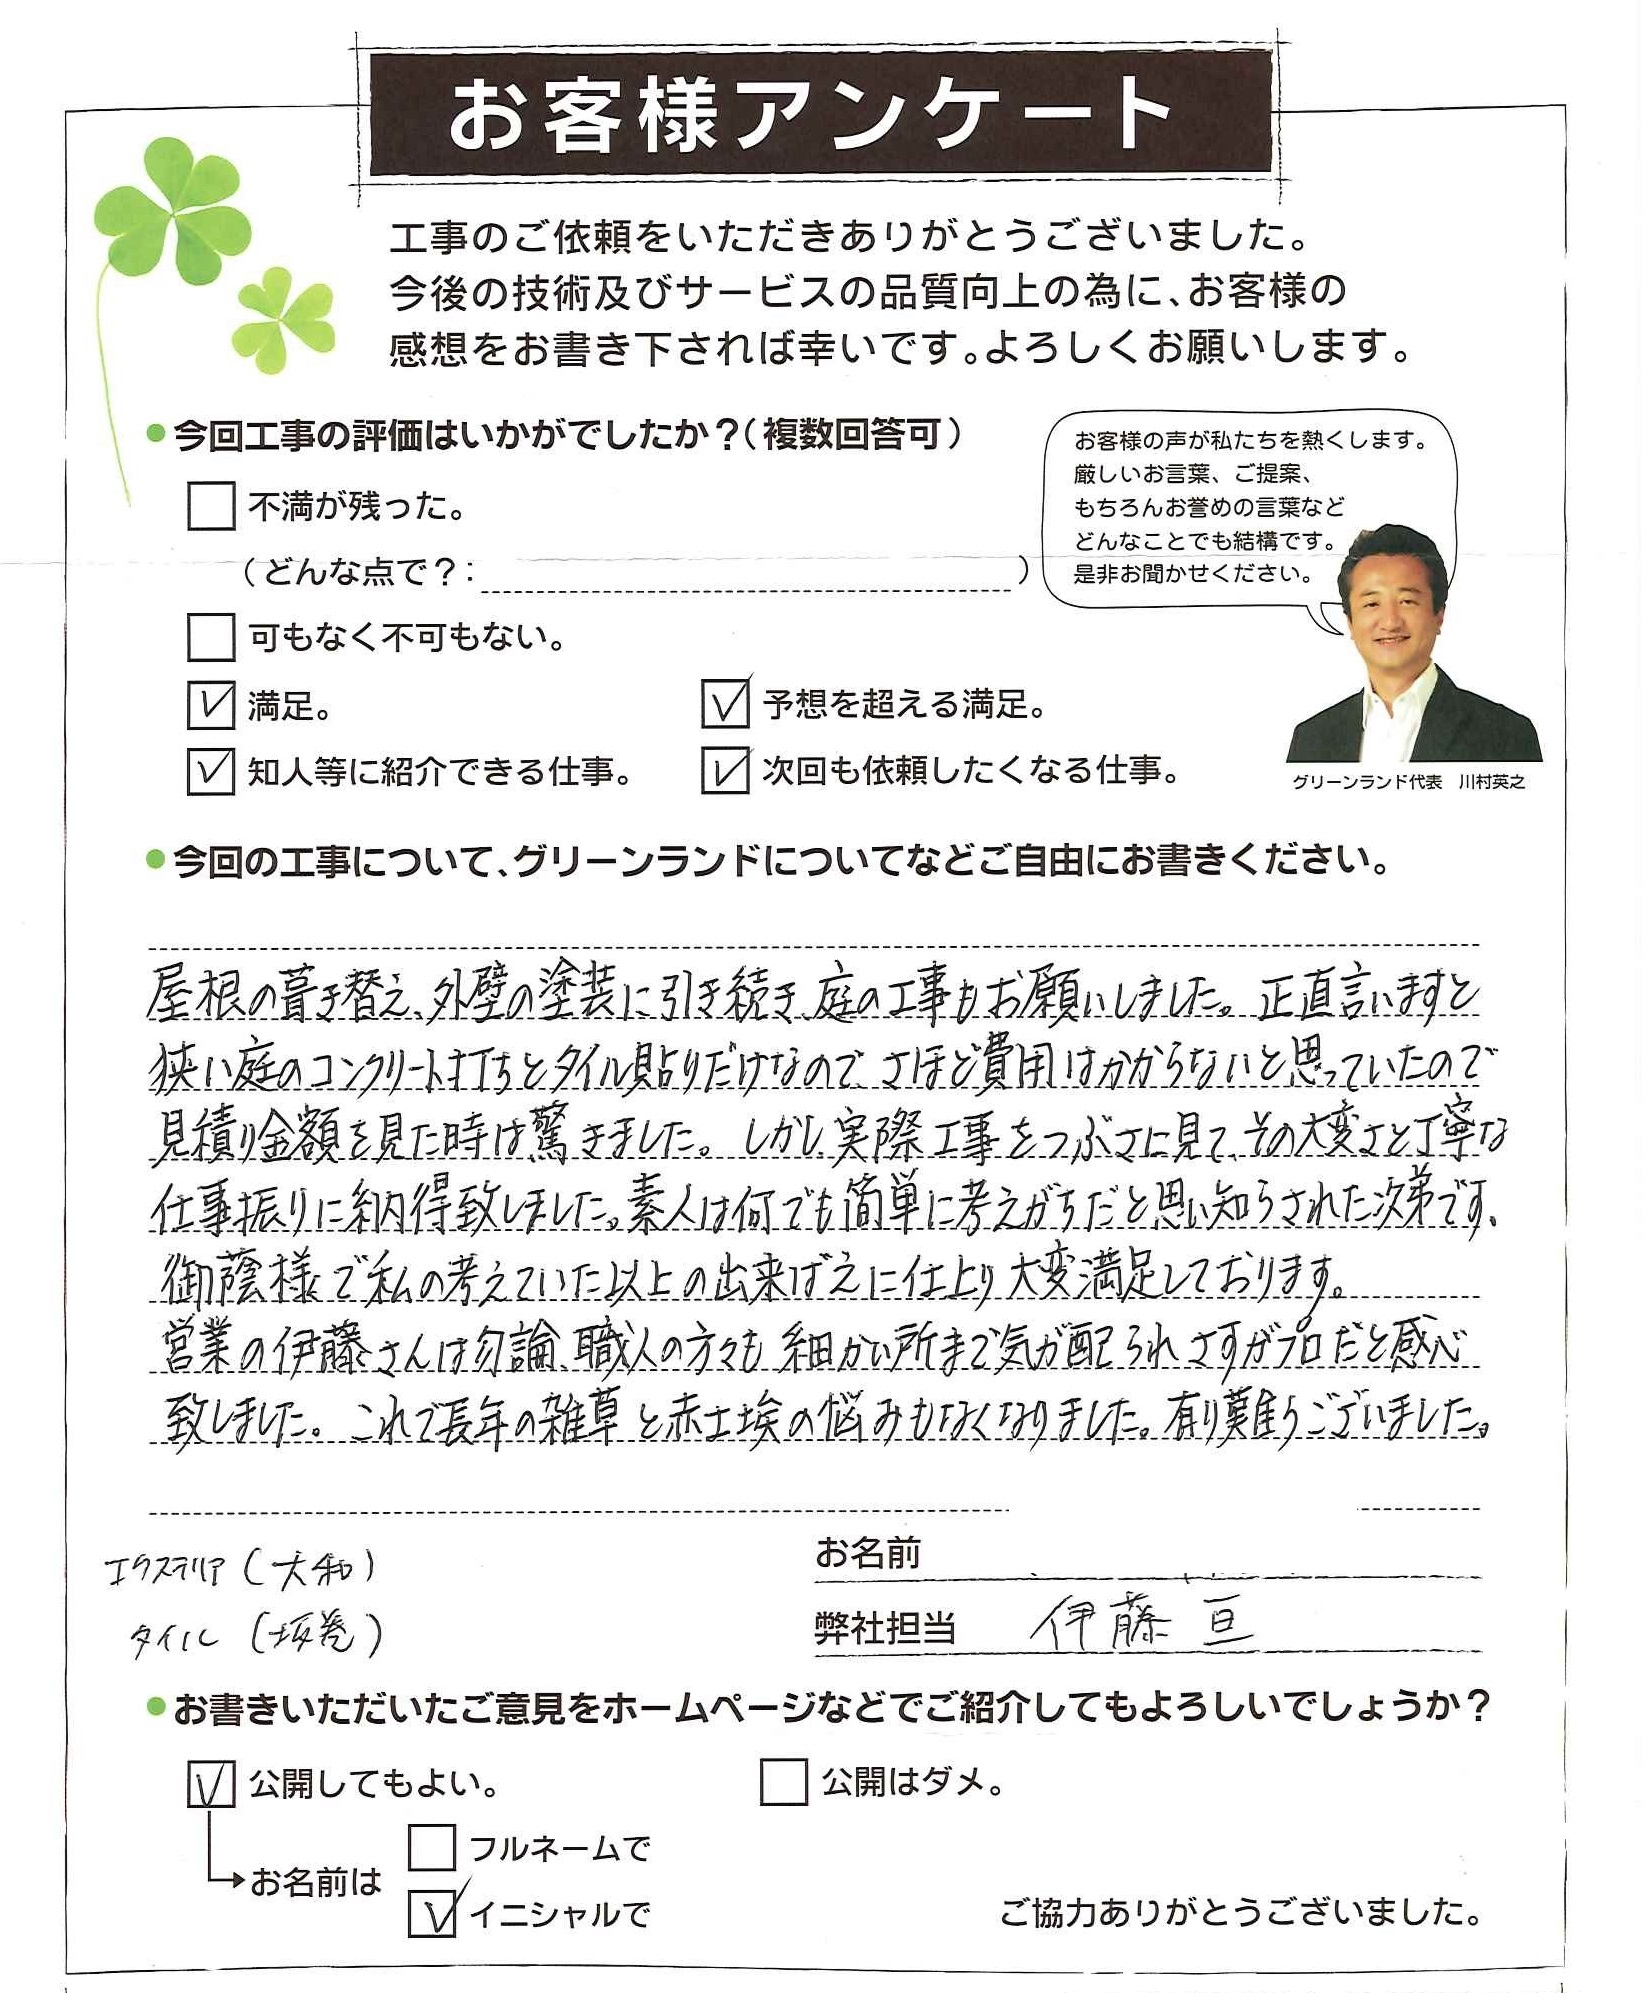 お客様アンケート
工事のご依頼をいただきありがとうございました。
今後の技術及びサービスの品質向上の為に、お客様の
感想をお書き下されば幸いです。よろしくお願いします。
●今回工事の評価はいかがでしたか？（複数回答可）
不満が残った。
（どんな点で？：　）
可もなく不可もない。
満足。
予想を超える満足。
知人等に紹介できる仕事。
次回も依頼したくなる仕事。
お客様の声が私たちを熱くします。
厳しいお言葉、ご提案、
もちろんお誉めの言葉など
どんなことでも結構です。
是非お聞かせください。
グリーンランド代表　川村英之
●今回の工事について、グリーンランドについてなどご自由にお書きください。
屋根の葺き替え、外壁の塗装に引き続き、庭の工事もお願いしました。正直言いますと
狭い庭のコンクリート打ちとタイル貼りだけなので、さほど費用はかからないと思っていたので
見積り金額を見た時は驚きました。しかし、実際工事をつぶさに見て、その大変さと丁寧な
仕事振りに納得致しました。素人は何でも簡単に考えがちだと思い知らされた次第です。
御蔭様で私の考えていた以上の出来ばえに仕上り大変満足しております。
営業の伊藤さんは勿論、職人の方々も細かい所まで気が配られさすがプロだと感心
致しました。これで長年の雑草と赤土埃の悩みもなくなりました。有り難うございました。
エクステリア（大和）
タイル（坂巻）
お名前
弊社担当　伊藤 亘
●お書きいただいたご意見をホームページなどでご紹介してもよろしいでしょうか？
公開してもよい。
公開はダメ。
お名前は
フルネームで
イニシャルで
ご協力ありがとうございました。